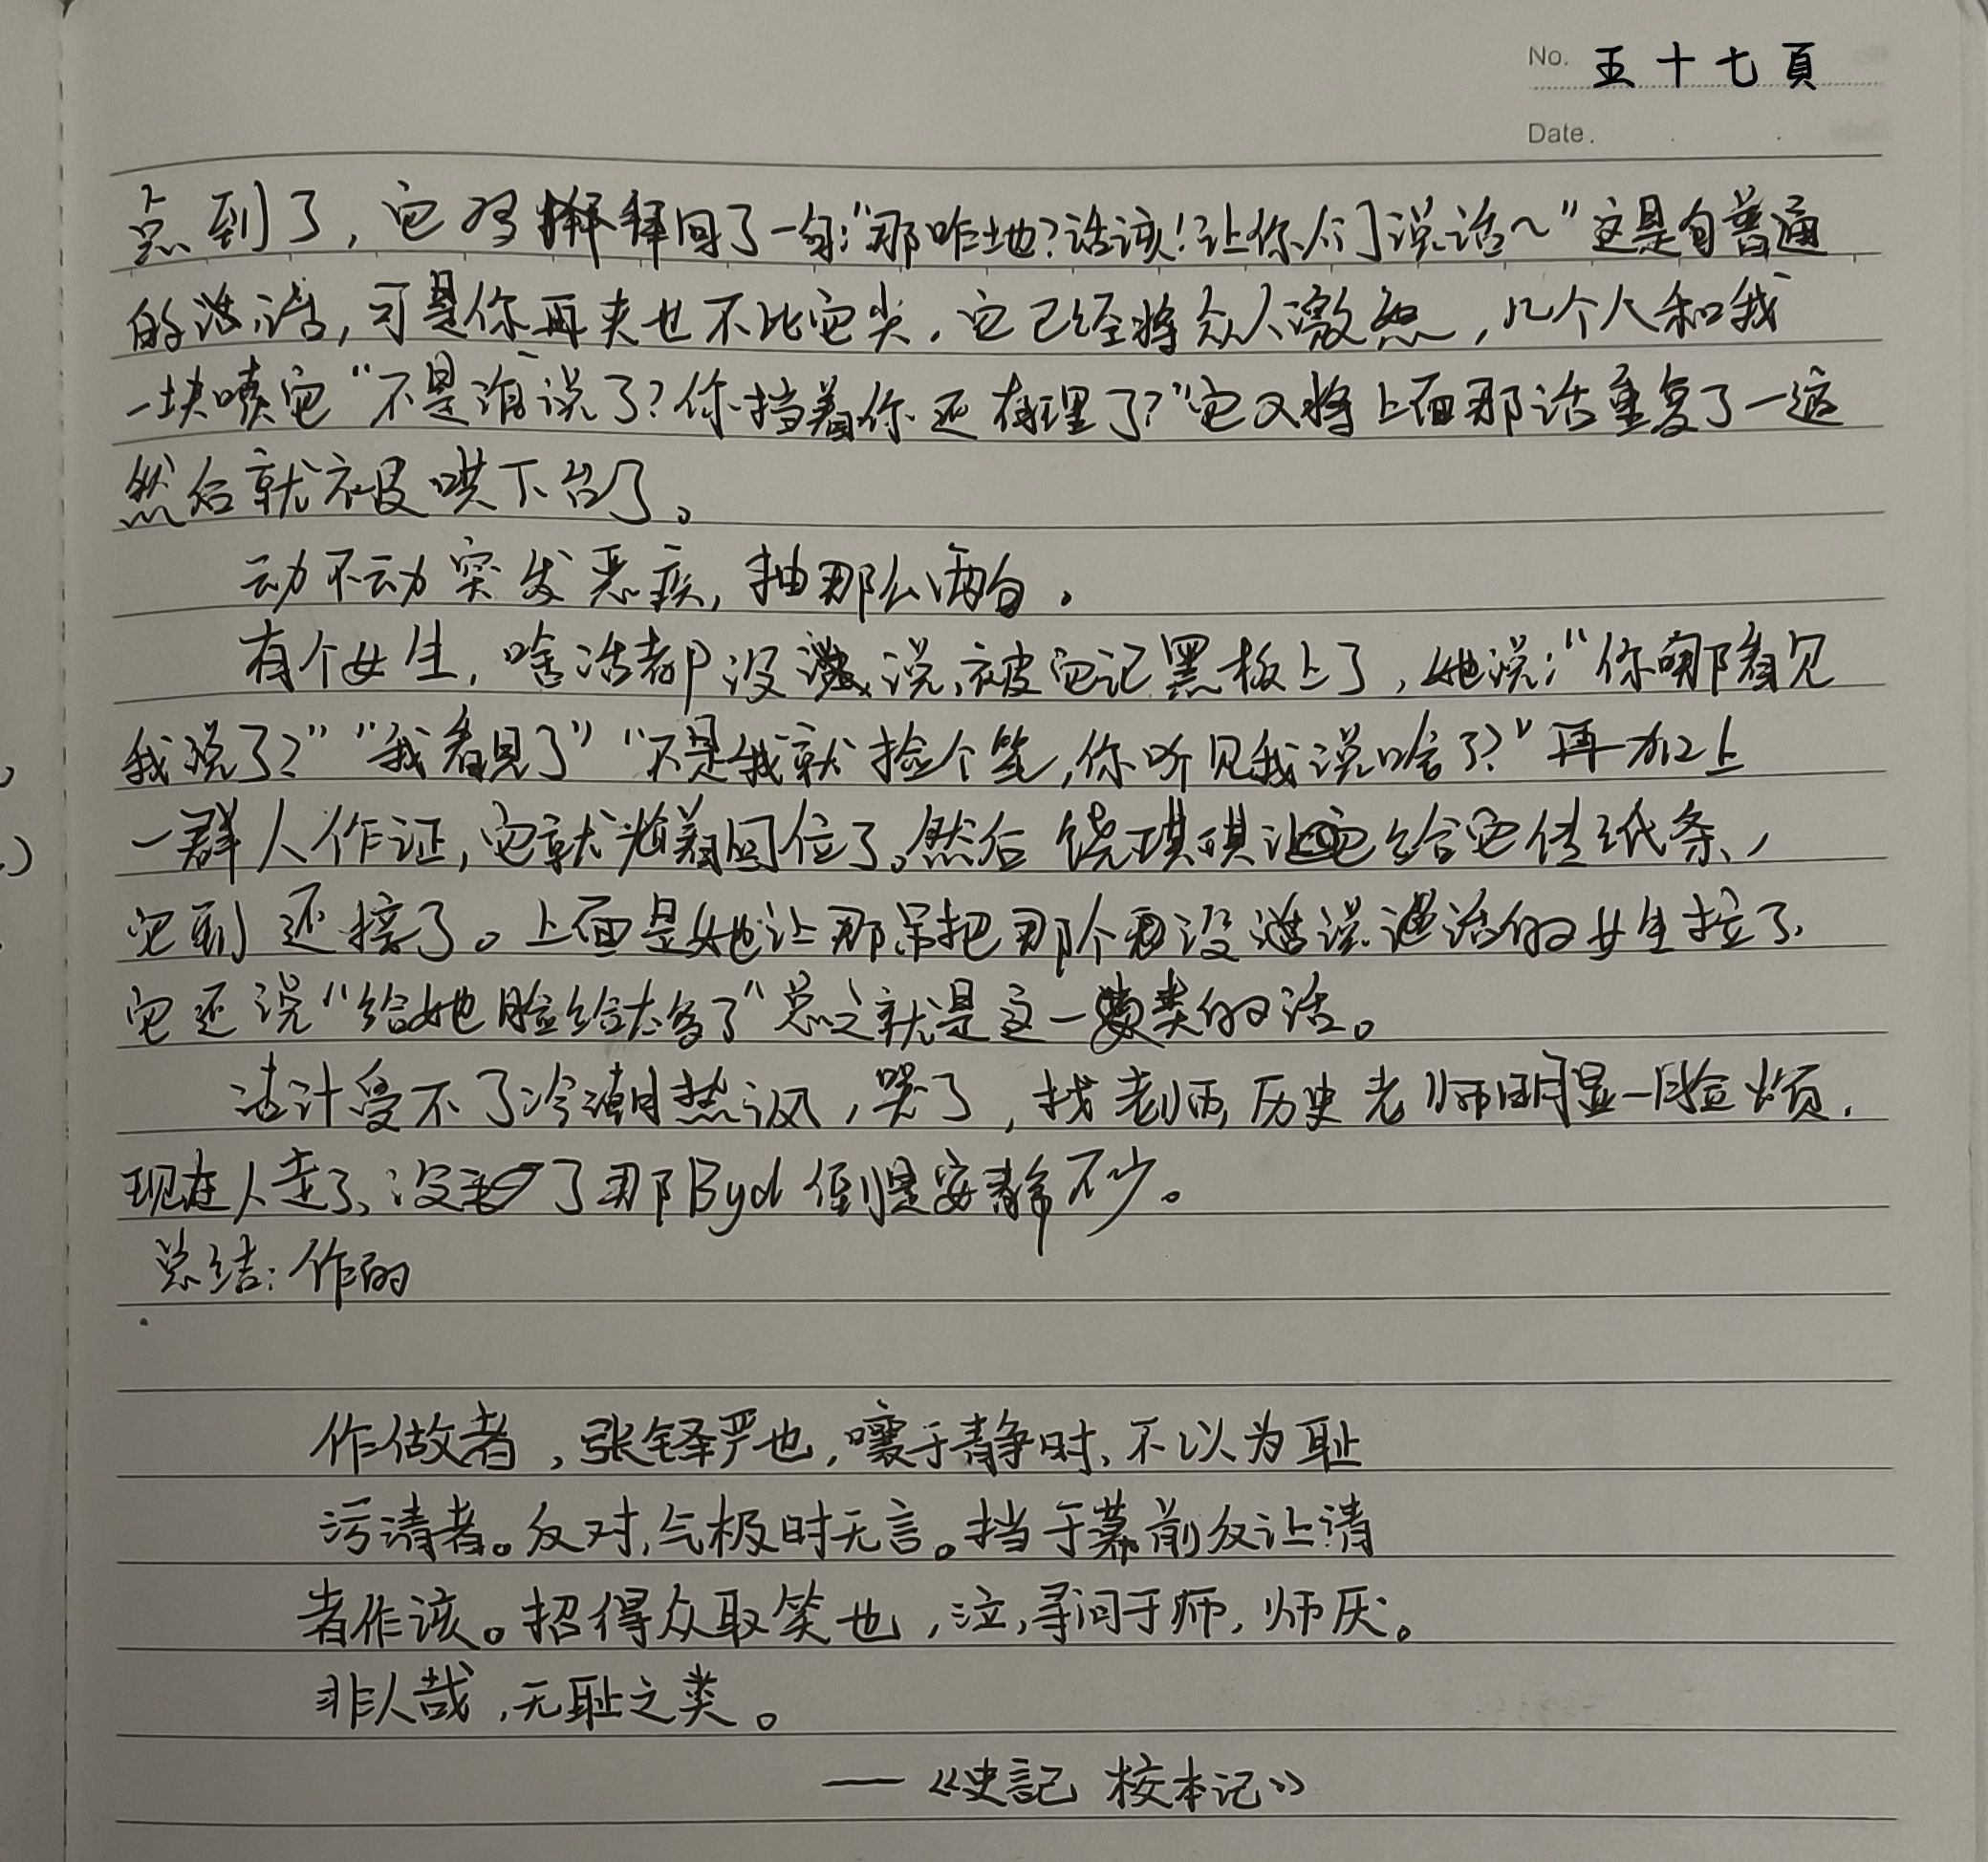 No. 五十七頁
Date.
点到了，它回了一句:"那咋地?活该!让你们说话~"这是句普通
的话,可是你再夹也不比它尖，它已经将众人激怒，几个人和我
一块喷它"不是谁说了?你挡着你还有理了?"它又将上面那话重复了一遍
然后就被哄下台了。
动不动突发恶疾，抽那么两句。
有个女生，啥话都没说,被它记黑板上了，她说:"你哪看见
我说了?""我看見了""不是我就捡个笔,你听见我说啥了?"再加上
一群人作证,它就尬着回位了。然后饶琪琪让给它传纸条,
它到还接了。上面是她让那吊把那个没说过话的女生拉了,
它还说"给她脸给太多了"总之就是这一类的话。
估计受不了冷潮热讽,哭了,找老师,历史老师明显一脸烦.
现在人走了、没了那Byd倒是安静不少。
总结:作的
作做者,张铎严也,嚷于静时、不以为耻
污清者。反对,气极时无言。挡于幕前反让请
者作该。招得众取笑也,泣,寻问于师,师厌。
非人哉,无耻之类。
——《史記 校本记》